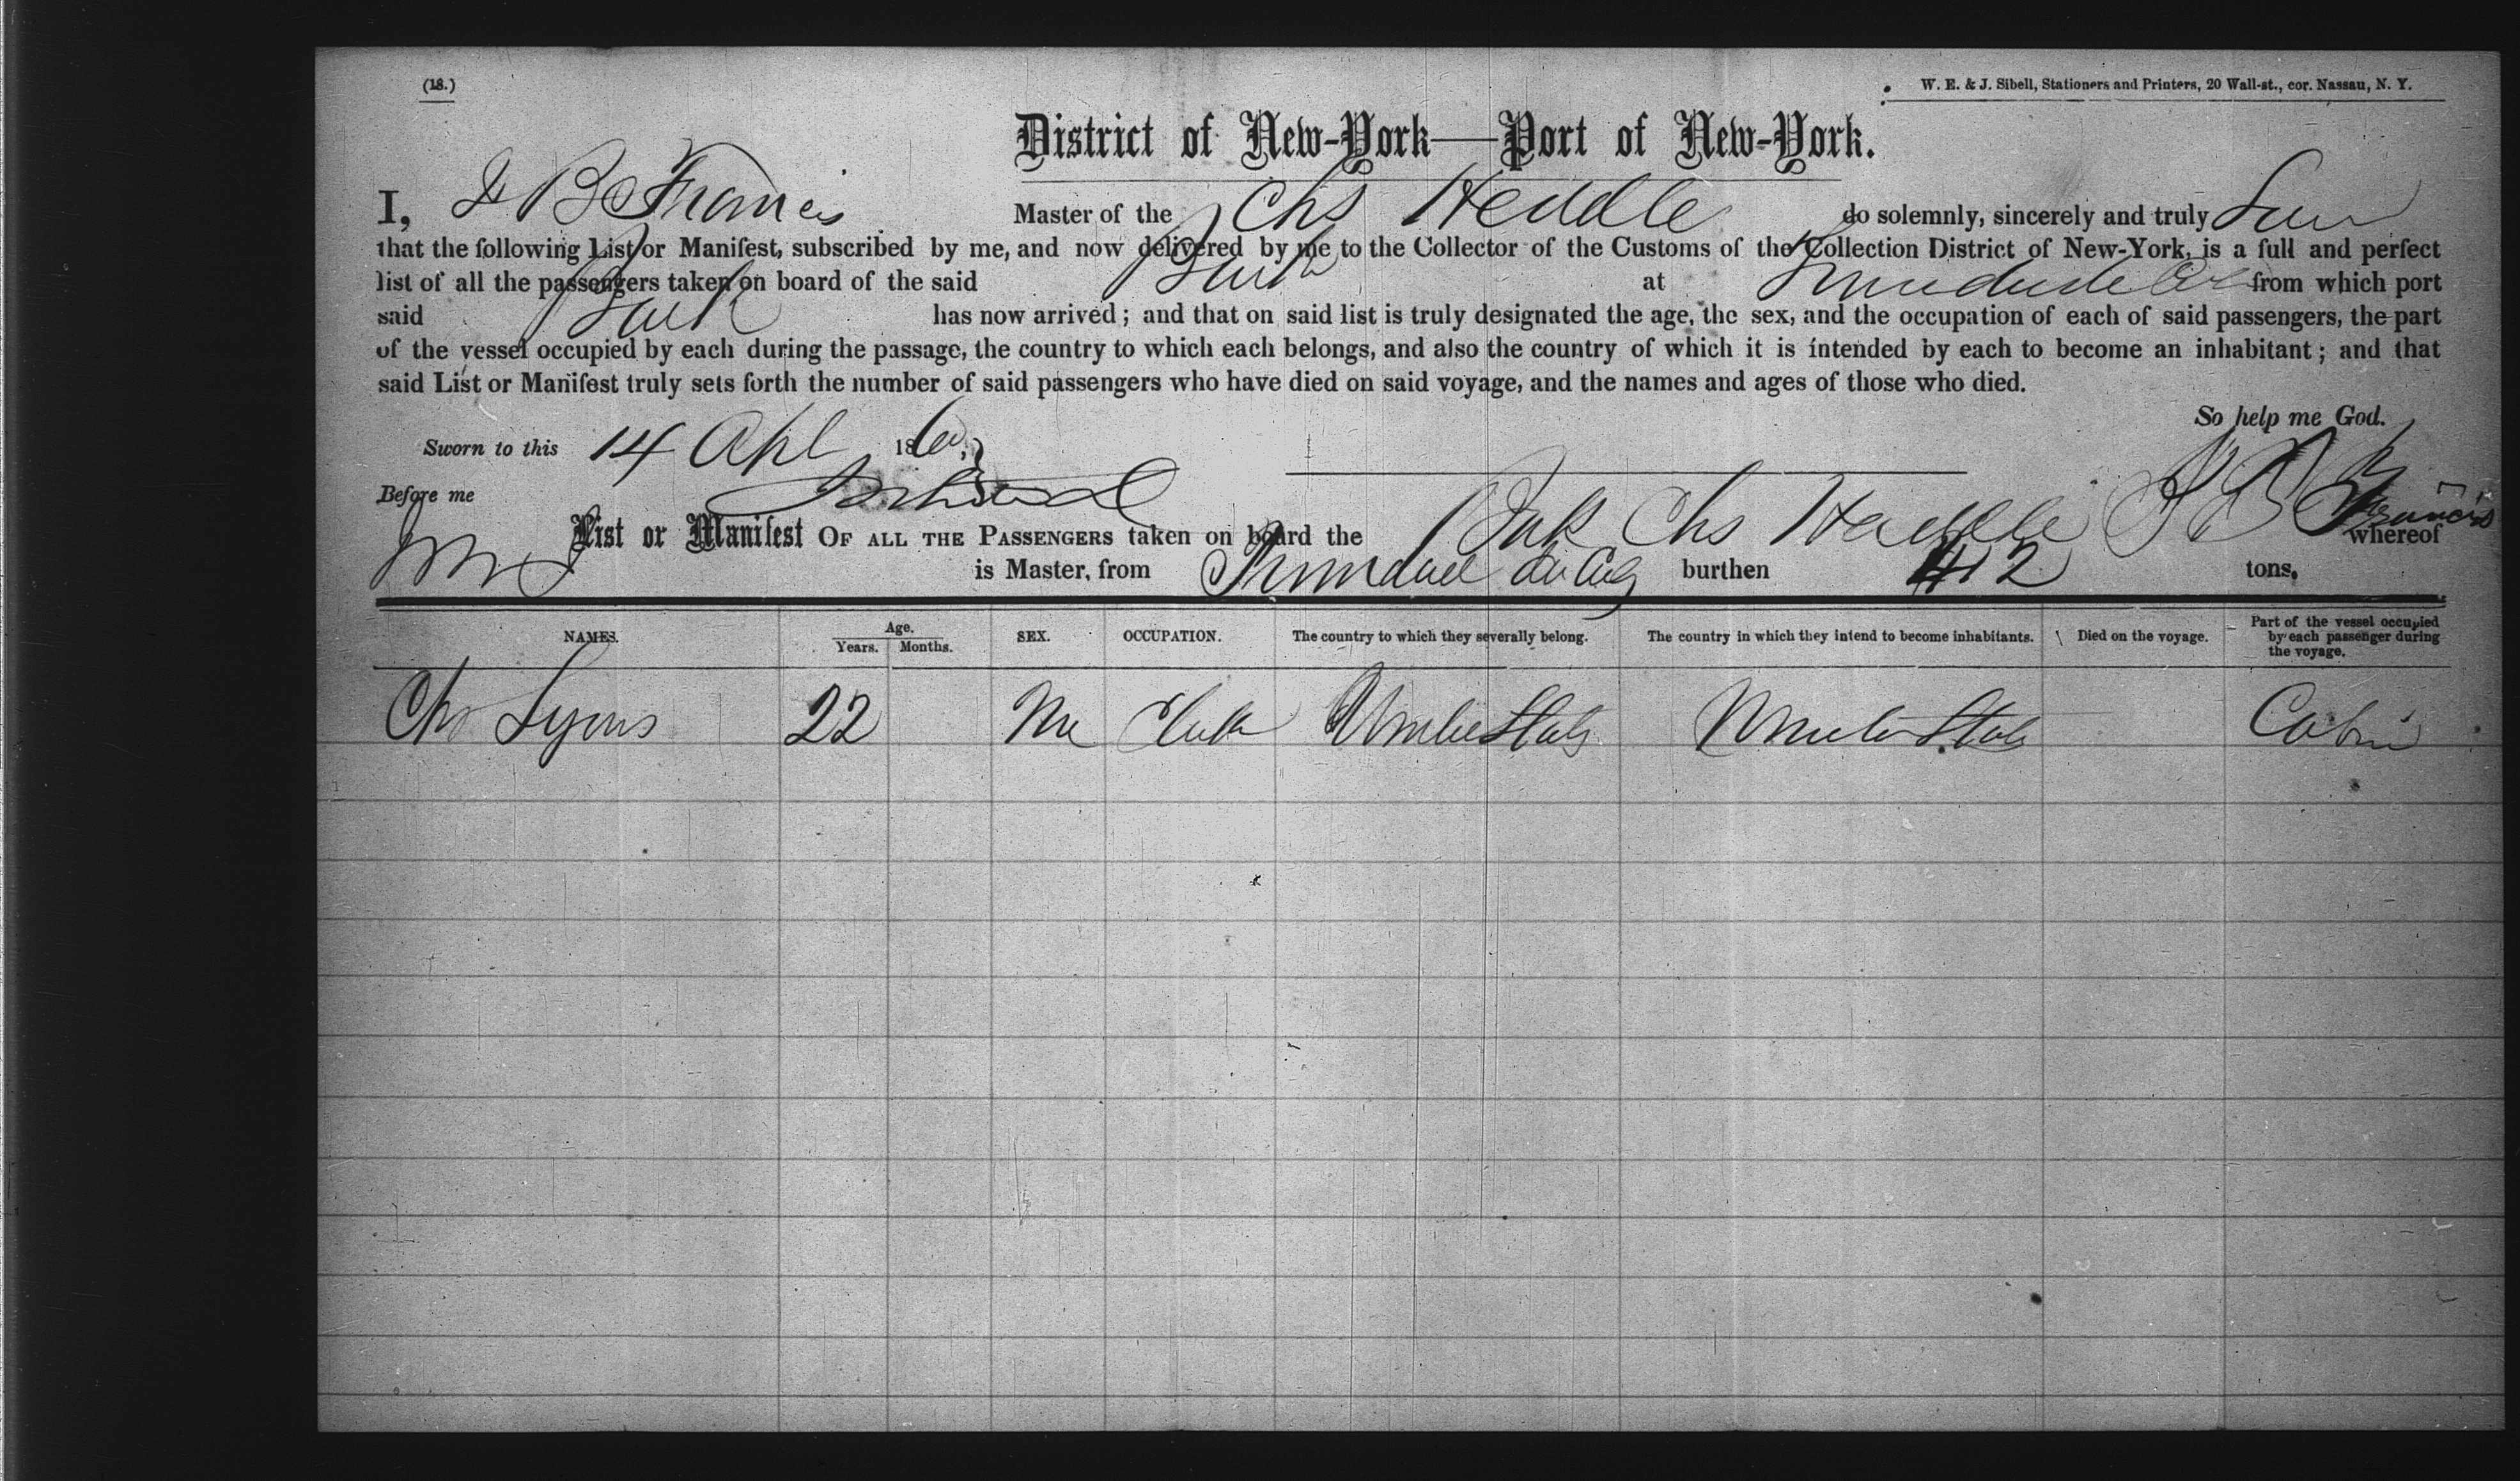 (18.)
W. E. & J. Sibell, Stationers and Printers, 20 Wall-st., cor. Nassau, N. Y.
District of New-York—Port of New-York.
I, B Francis Master of the Chs Heddle do solemnly, sincerely and truly
that the following List or Manifest, subscribed by me, and now delivered by me to the Collector of the Customs of the Collection District of New-York, is a full and perfect
list of all the passengers taken on board of the said Bark at from which port
said Bark has now arrived; and that on said list is truly designated the age, the sex, and the occupation of each of said passengers, the part
of the vessel occupied by each during the passage, the country to which each belongs, and also the country of which it is intended by each to become an inhabitant; and that
said List or Manifest truly sets forth the number of said passengers who have died on said voyage, and the names and ages of those who died.
So help me God.
Sworn to this 14 Apl 186
Before me
List or Manifest OF ALL THE PASSENGERS taken on board the Bark Chs Heddle B Francis whereof
is Master, from Trinidad de Cuba burthen 412 tons,
NAMES. Age. Years. Months. SEX. OCCUPATION. The country to which they severally belong. The country in which they intend to become inhabitants. Died on the voyage. Part of the vessel occupied by each passenger during the voyage.
Chs Lyons 22 M Clerk United States United States Cabin